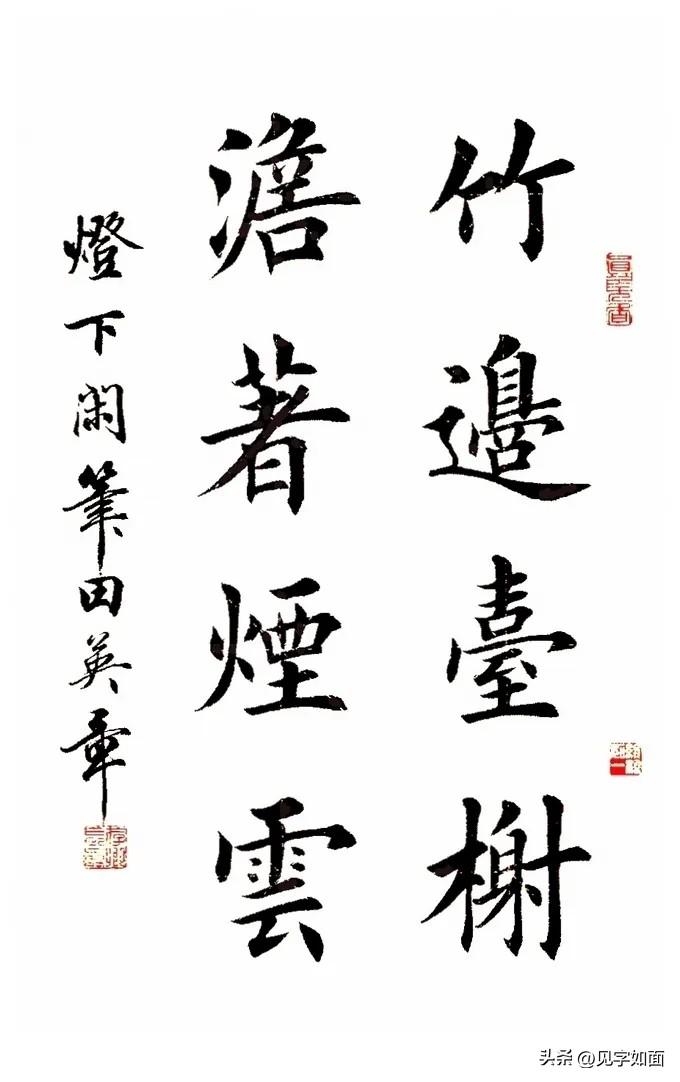 竹邉臺榭
澹著煙雲
燈下閑筆田英章
头条 @见字如面